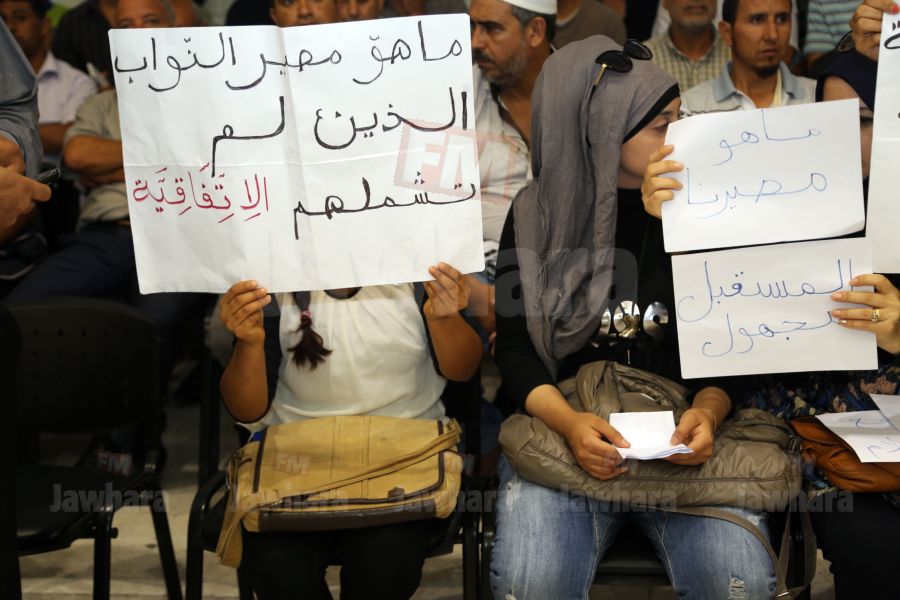 ما هوّ مصير النّواب
الذين لم
تشملهم الاِتِّفَاقِيَّة
ماهو
مصيرنا
المستقبل
مجهول
FM
Jawhara
FM
FM
Jawhara
Jawhara
Jawhara
Jawhara